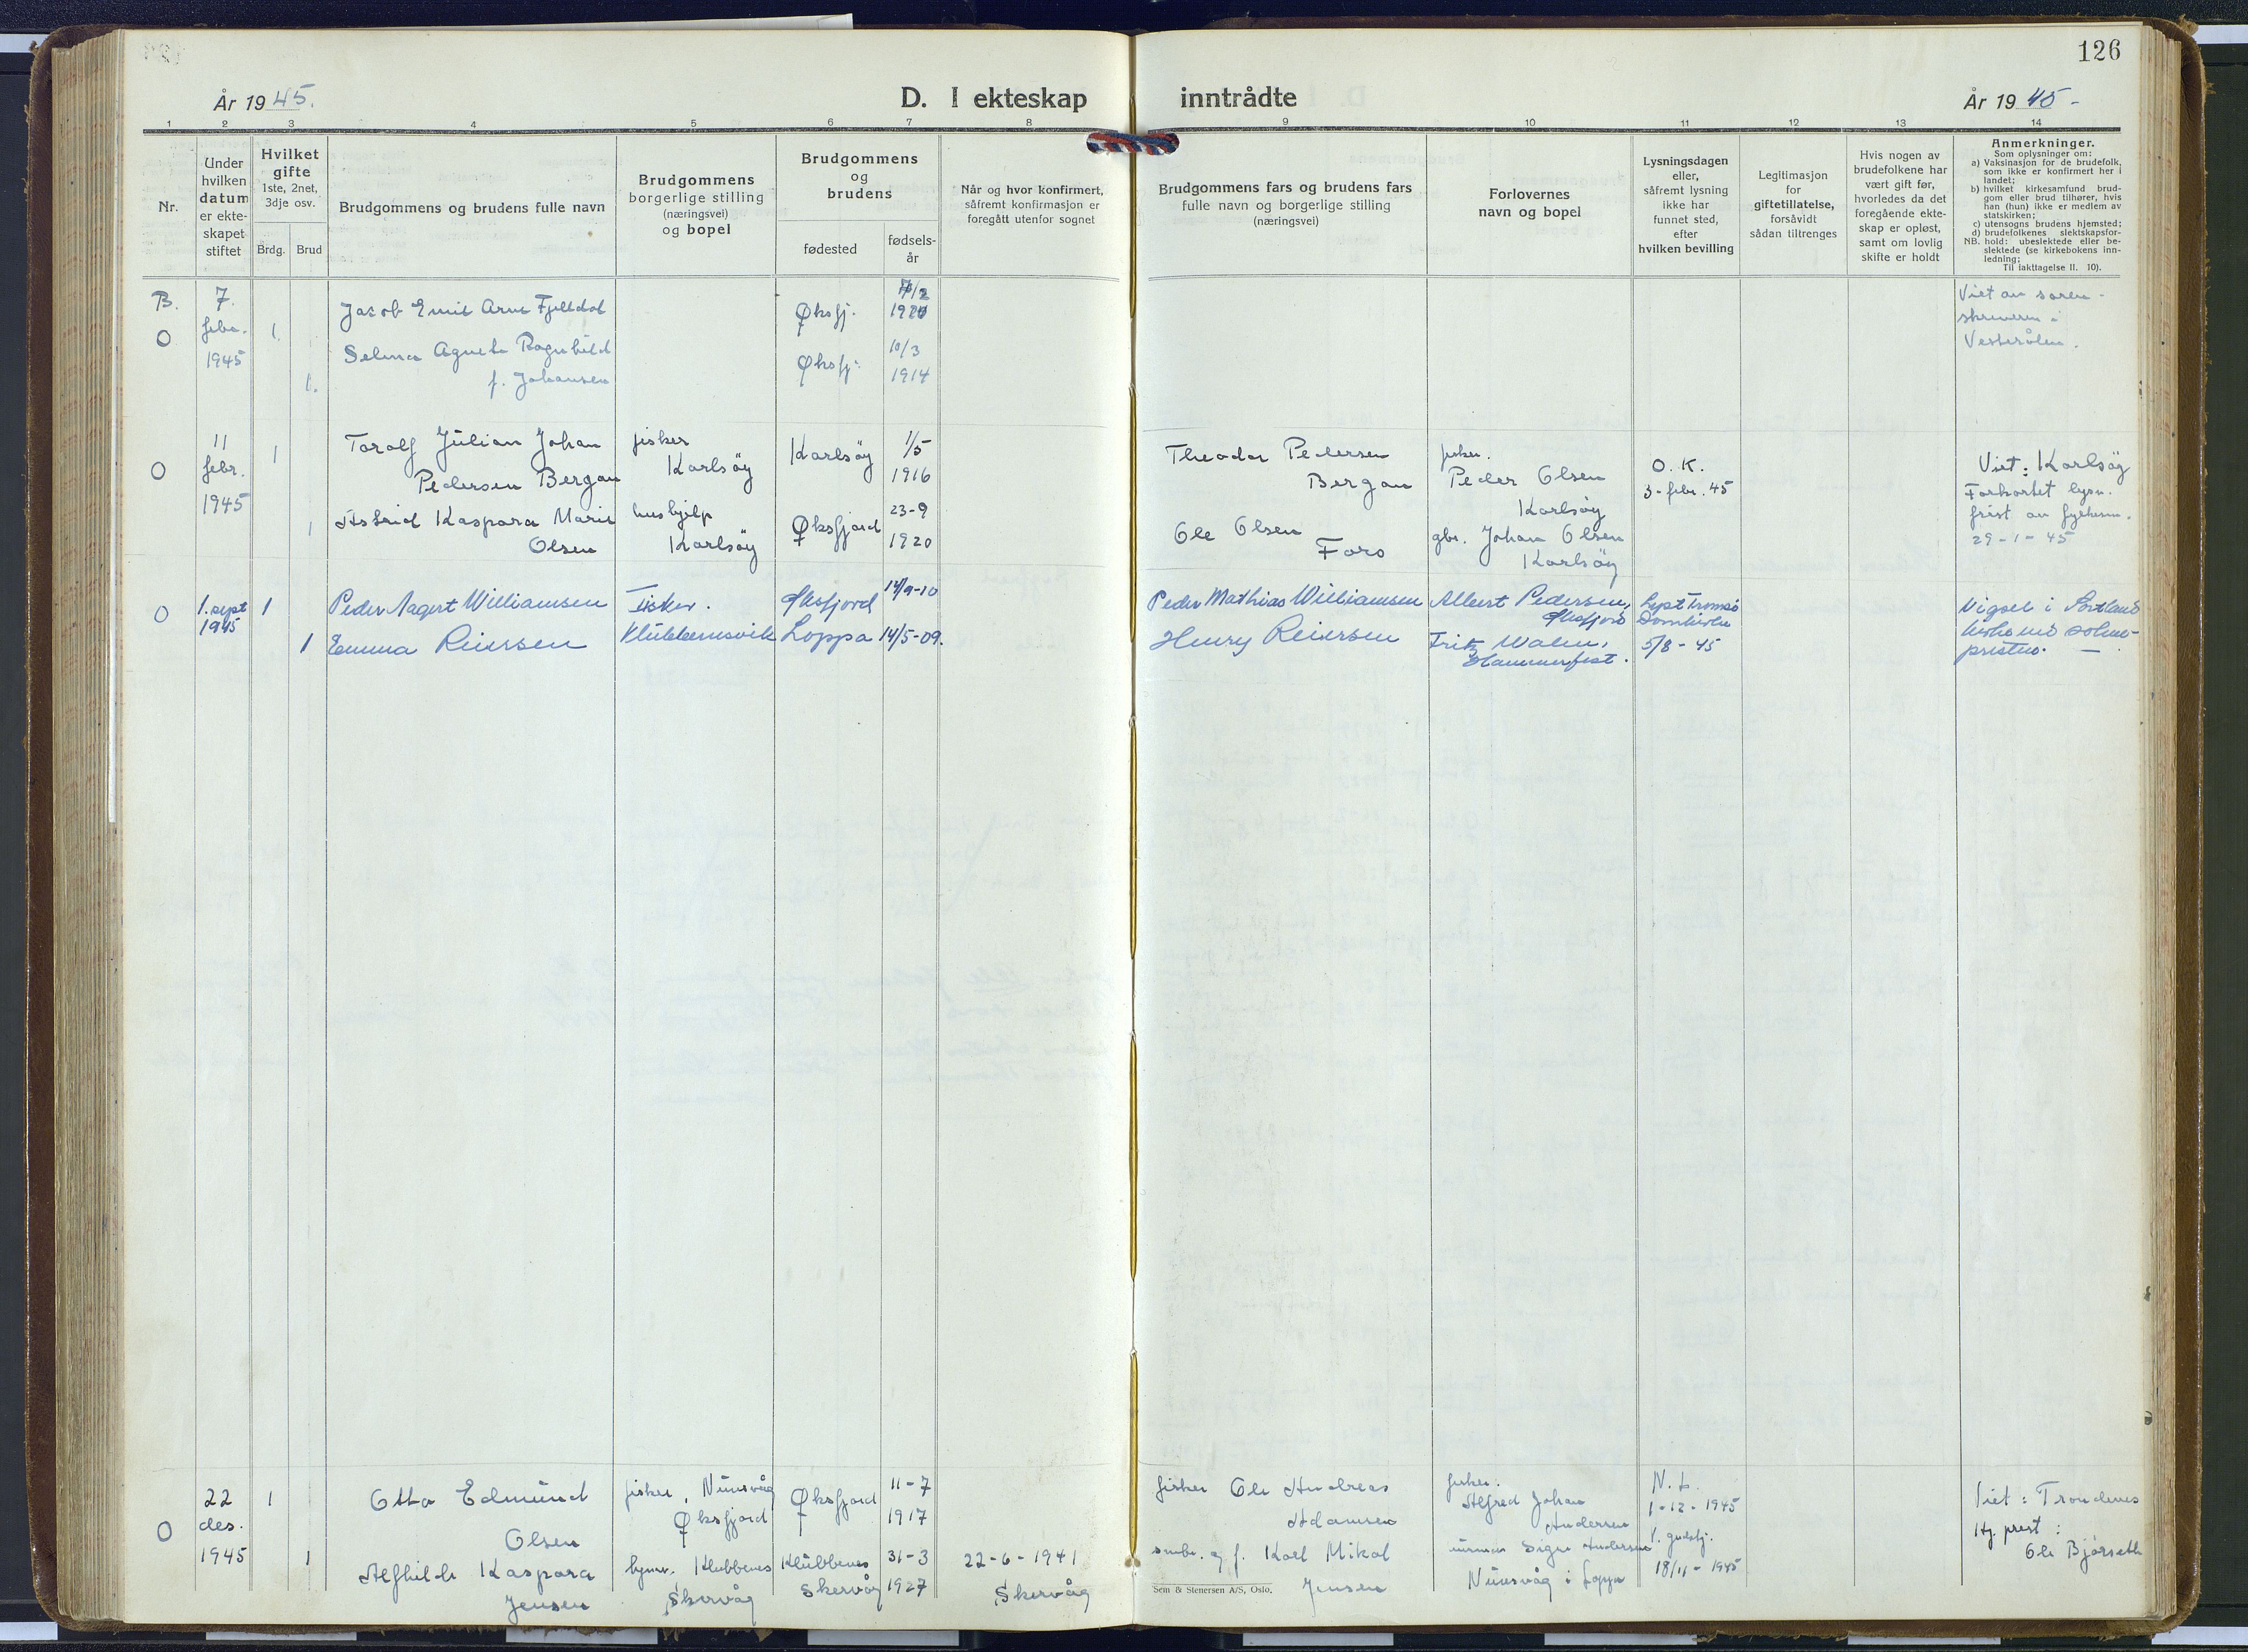 126
År 1945.
D. I ekteskap inntrådte
År 1945-
1 2 3 4 5 6 7 8 9 10 11 12 13 14
Nr.
Under
hvilken
datum
er ekte-
skapet
stiftet
Hvilket
gifte
1ste, 2net,
3dje osv.
Brdg. Brud
Brudgommens og brudens fulle navn
Brudgommens
borgerlige stilling
(næringsvei)
og bopel
Brudgommens
og
brudens
fødested
fødsels-
år
Når og hvor konfirmert,
såfremt konfirmasjon er
foregått utenfor sognet
Brudgommens fars og brudens fars
fulle navn og borgerlige stilling
(næringsvei)
Forlovernes
navn og bopel
Lysningsdagen
eller,
såfremt lysning
ikke har
funnet sted,
efter
hvilken bevilling
Legitimasjon
for
giftetillatelse,
forsåvidt
sådan tiltrenges
Hvis nogen av
brudefolkene har
vært gift før,
hvorledes da det
foregående ekte-
skap er opløst,
samt om lovlig
skifte er holdt
Anmerkninger.
Som oplysninger om:
a) Vaksinasjon for de brudefolk,
som ikke er konfirmert her i
landet;
b) hvilket kirkesamfund brud-
gom eller brud tilhører, hvis
han (hun) ikke er medlem av
statskirken;
c) utensogns brudens hjemsted;
d) brudefolkenes slektskapsfor-
NB. hold: ubeslektede eller be-
slektede (se kirkebokens inn-
ledning;
Til iakttagelse II. 10).
B.
O
7.
febr.
1945
1
1.
Jacob Emil Arne Fjelldal
Selma Agnete Ragnhild
f. Johansen
Øksfj.
Øksfj.
10/3
1914
Viet av soren-
skriveren i
Vesterålen.
O
11
febr.
1945
1
1
Torolf Julian Johan
Pedersen Bergan
Astrid Kaspara Marie
Olsen
fisker
Karlsøy
hushjelp
Karlsøy
Karlsøy
Øksfjord
1/5
1916
23-9
1920
Theodor Pedersen
Bergan
Ole Olsen
Foro
fisker.
Peder Olsen
Karlsøy
gbr. Johan Olsen
Karlsøy
O. K.
3-febr. 45
Viet: Karlsøy
Forkortet lysn.
frist av fylkesm.
29-1-45
O
1. sept
1945
1
1
Peder Aagert Williamsen
Emma Reiersen
Fisker.
Klubbenesvik
Øksfjord
Loppa
14/9-10
14/5-09.
Peder Mathias Williamsen
Henry Reiersen
Albert Pedersen,
Øksfjord
Fritz
Hammerfest.
Lyst Tromsø
Domkirke
5/8-45
Vigsel i Sortland
kirke ved sokne-
presten.
O
22
des.
1945
1
1
Otto Edmund
Olsen
Alfhilde Kaspara
Jensen
fisker, Nuvsvåg
Øksfjord
Klubbenes
Skervåg
Øksfjord
Klubbenes
Skervåg
11-7
1917
31-3
1927
22-6-1941
Skervåg
fisker Ole Andreas
Adamsen
Karl Mikal
Jensen
fisker.
Alfred Johan
Andersen
Signe Andersen
Nuvsvåg i Loppa
N. L.
1-12-1945
18/11-1945
Viet: Trondenes
Hj. prest:
Ole Bjørseth
Sem & Stenersen A/S, Oslo.